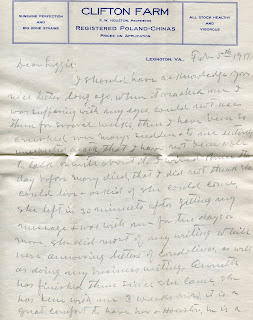 SUNSHINE PERFECTION
AND
BIG BONE STRAINS
CLIFTON FARM
R. W. HOUSTON, PROPRIETOR
REGISTERED POLAND-CHINAS
PRICES ON APPLICATION
ALL STOCK HEALTHY
AND
VIGOROUS
LEXINGTON, VA.
Feb 5th 191
Dear Lizzie:
I should have acknowledged your
nice letter long ago, when it reached me I
was suffering with my eyes, could not use
them for several weeks, then I have been so
that I have not been able
to
day before Mary died, that I did not think she
could live & asked if she could come,
she left in 30 minutes after getting my
message & was with me for ten days or
more, she did most of my writing which
was answering letters of condolence, as well
as doing any business writing,
has finished them since she came, she
has been with me 3 weeks and it is a
great comfort to have her &